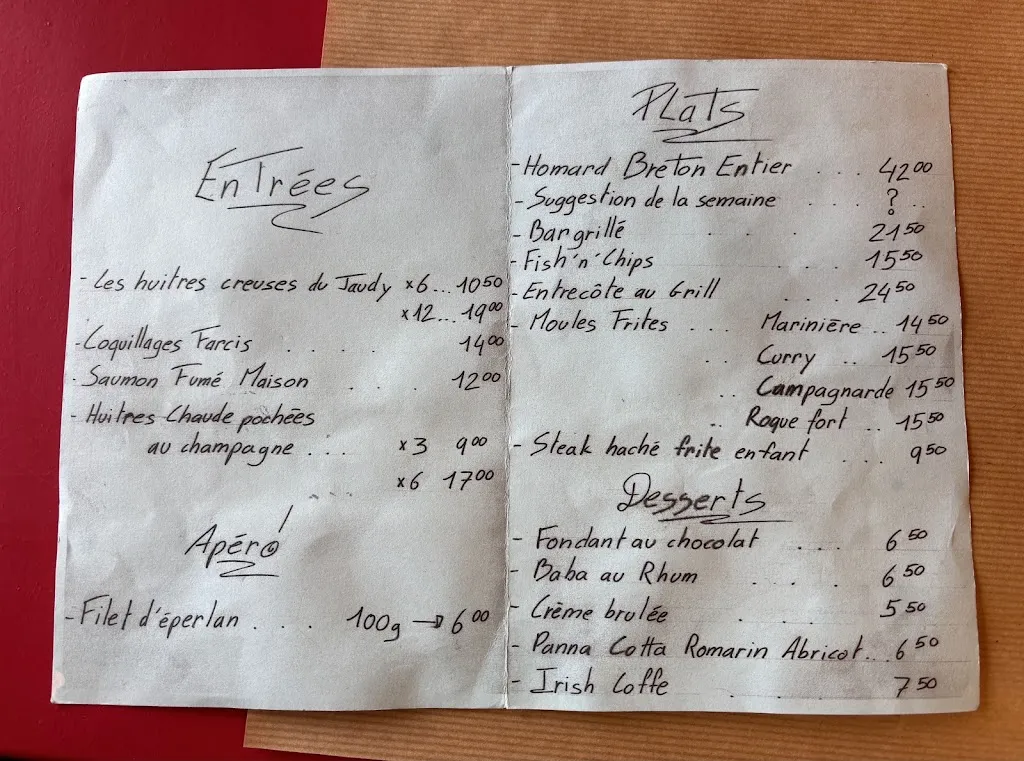 Entrées
- Les huitres creuses du Jaudy x6... 10 50
x12... 19 00
- Coquillages Farcis . . . . 14 00
- Saumon Fumé Maison . . . . 12 00
- Huitres Chaude pochées
au champagne . . . x3 9 00
x6 17 00
Apéro
- Filet d'éperlan . . . . 100g → 6 00
Plats
- Homard Breton Entier . . . 42 00
- Suggestion de la semaine . . . ? ..
- Bar grillé . . . 21 50
- Fish'n'Chips 15 50
- Entrecôte au Grill . . . 24 50
- Moules Frites . . . Marinière .. 14 50
.. Curry .. 15 50
.. Campagnarde 15 50
.. Roque fort .. 15 50
- Steak haché frite enfant . . . 9 50
Desserts
- Fondant au chocolat . . . 6 50
- Baba au Rhum . . . . 6 50
- Crème brulée . . . 5 50
- Panna Cotta Romarin Abricot... 6 50
- Irish Coffe . . . 7 50